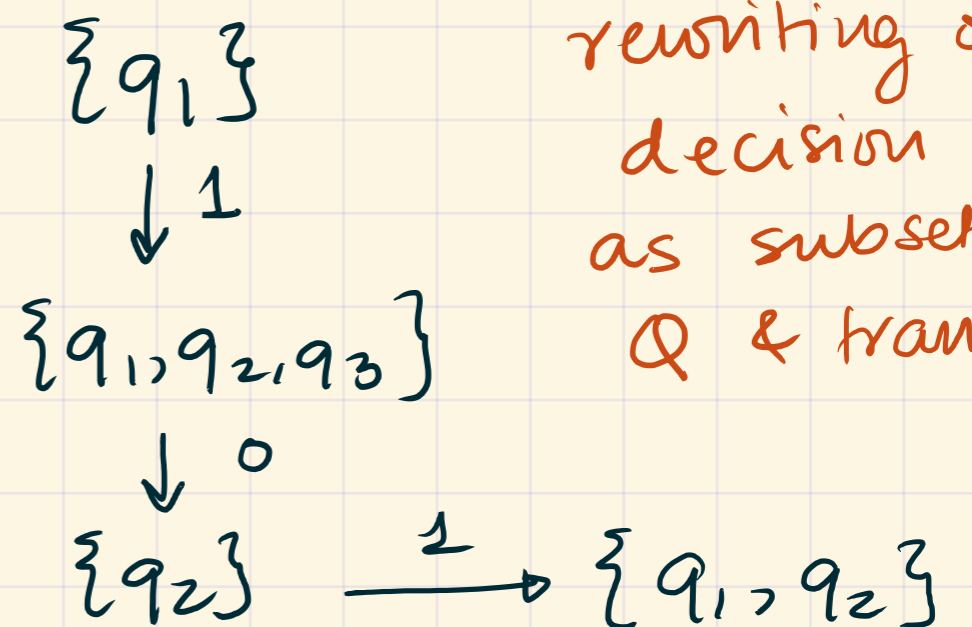 {q1}
↓ 1
{q1, q2, q3}
↓ 0
{q2} 1 → {q1, q2}
rewriting
decision
as subset
Q &